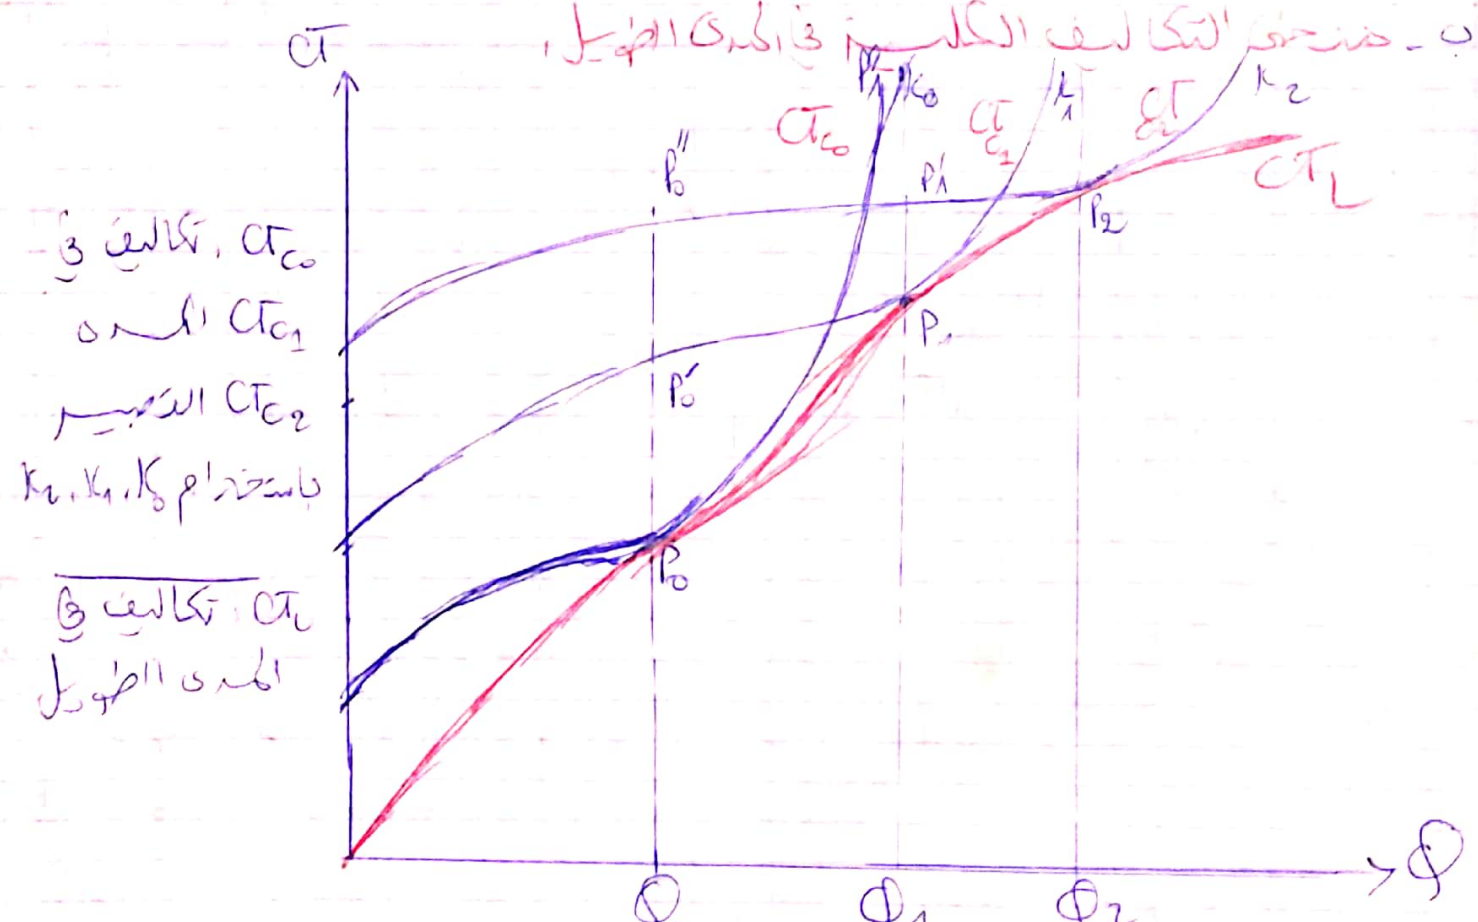 ب - منحنى التكاليف الكلية في المدى الطويل.
CT
P₁″ K₀ K₁ K₂
CT_C0 CT_C1 CT_C2
CT_L
P₀″ P₁′ P₂
CT_C0 . تكاليف في
CT_C1 المدى
CT_C2 القصير
P₀′ P₁
باستخدام K₀ ، K₁ ، K₂
P₀
CT_L : تكاليف في
المدى الطويل
Q Q₁ Q₂ Q